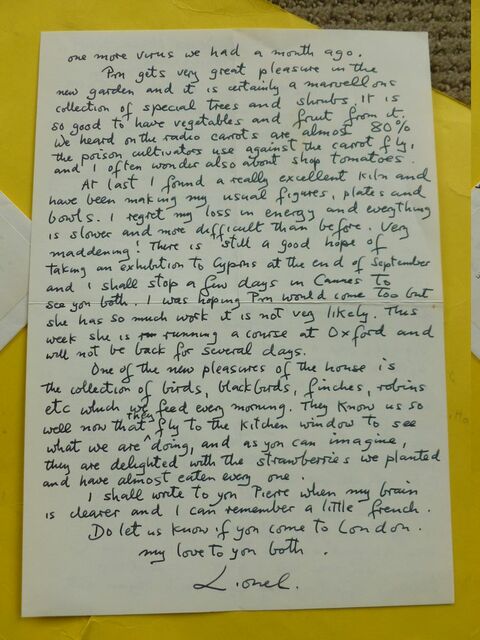 one more virus we had a month ago.
Prn gets very great pleasure in the
new garden and it is certainly a marvellous
collection of special trees and shrubs. it is
so good to have vegetables and fruit from it.
We heard on the radio carrots are almost 80%
the poison cultivators use against the carrot fly,
and I often wonder also about shop tomatoes.
At last I found a really excellent kiln and
have been making my usual figures, plates and
bowls. I regret my loss in energy and everything
is slower and more difficult than before. Very
maddening! There is still a good hope of
taking an exhibition to Cyprus at the end of September
and I shall stop a few days in Cannes To
see you both. I was hoping Prn would come too but
she has so much work it is not very likely. This
week she is running a course at Oxford and
will not be back for several days.
One of the new pleasures of the house is
the collection of birds, blackbirds, finches, robins
etc which we feed every morning. They know us so
well now that they fly to the kitchen window to see
what we are doing, and as you can imagine,
they are delighted with the strawberries we planted
and have almost eaten every one.
I shall write to you Pierre when my brain
is clearer and I can remember a little french.
Do let us know if you come to London.
my love to you both.
Lionel.